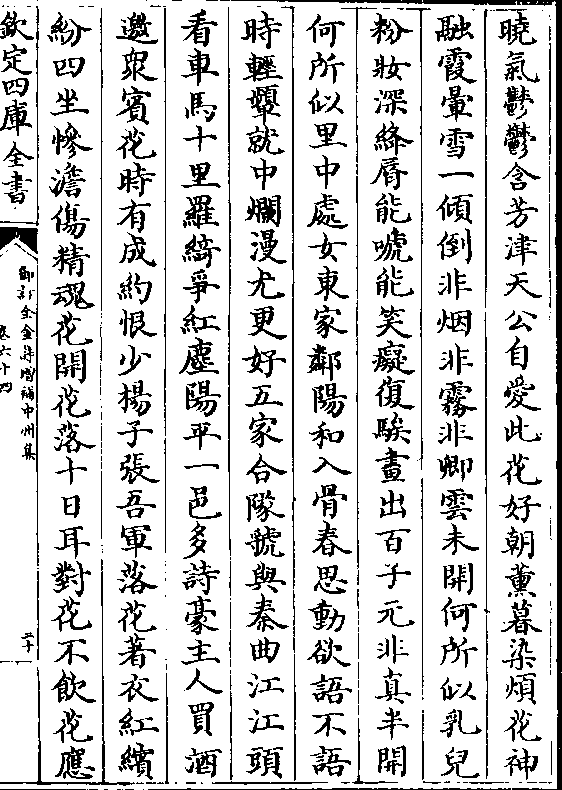 曉氣鬱鬱含芳津天公自愛此花好朝薰暮染煩花神
融霞暈雪一傾倒非烟非霧非卿雲未開何所似乳兒
粉妝深絳脣能啼能笑癡復騃畫出百子元非真半開
何所似里中處女東家鄰陽和入骨春思動欲語不語
時輕顰就中爛漫尤更好五家合隊虢與秦曲江江頭
看車馬十里羅綺爭紅塵陽平一邑多詩豪主人買酒
邀衆賓花時有成約恨少楊子張吾軍落花著衣紅繽
紛四坐慘澹傷精魂花開花落十日耳對花不飲花應
欽定四庫全書
御訂全金詩增補中州集
卷六十四
二十